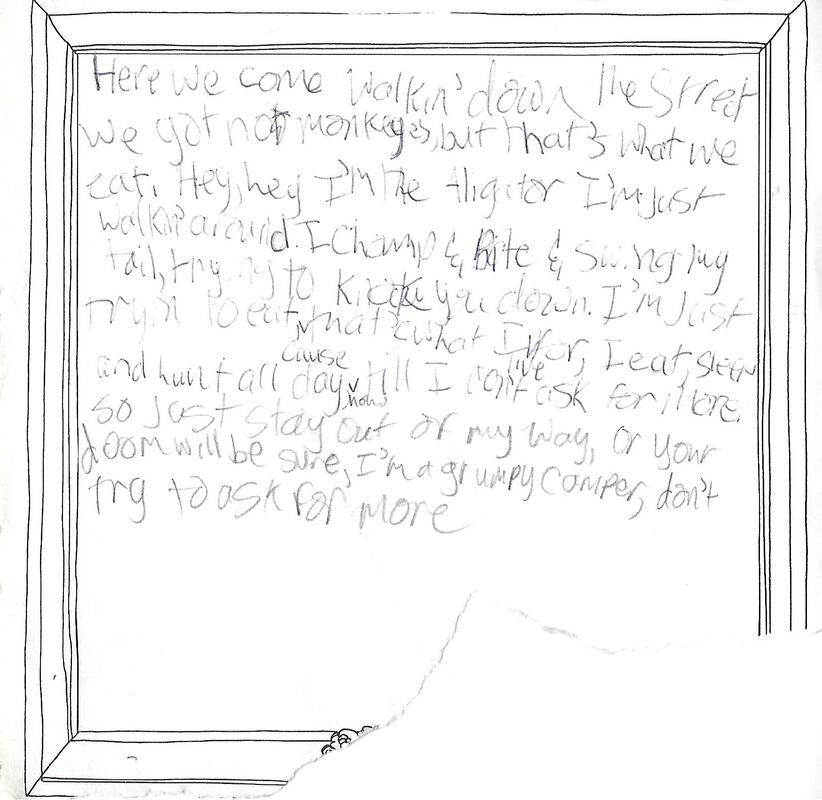 Here we come walkin' down the Street
we got not monkeyes, but that's what we
eat. Hey, hey I'm the Aligator I'm just
walkin' around. I champ & Bite & swing my
tail, trying to kick you down. I'm just
tryin to eat, that's what I for, I eat, sleep
cause live
and hunt all day, till I don't ask for more.
now
so just stay out of my way, or your
doom will be sure, I'm a grumpy camper, don't
try to ask for more